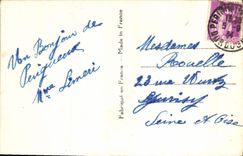 Un Bonjour de
Périgueux
Mme
Fabriqué en France
Made in France
Mesdames
Rouelle
23 rue
Seine et Oise